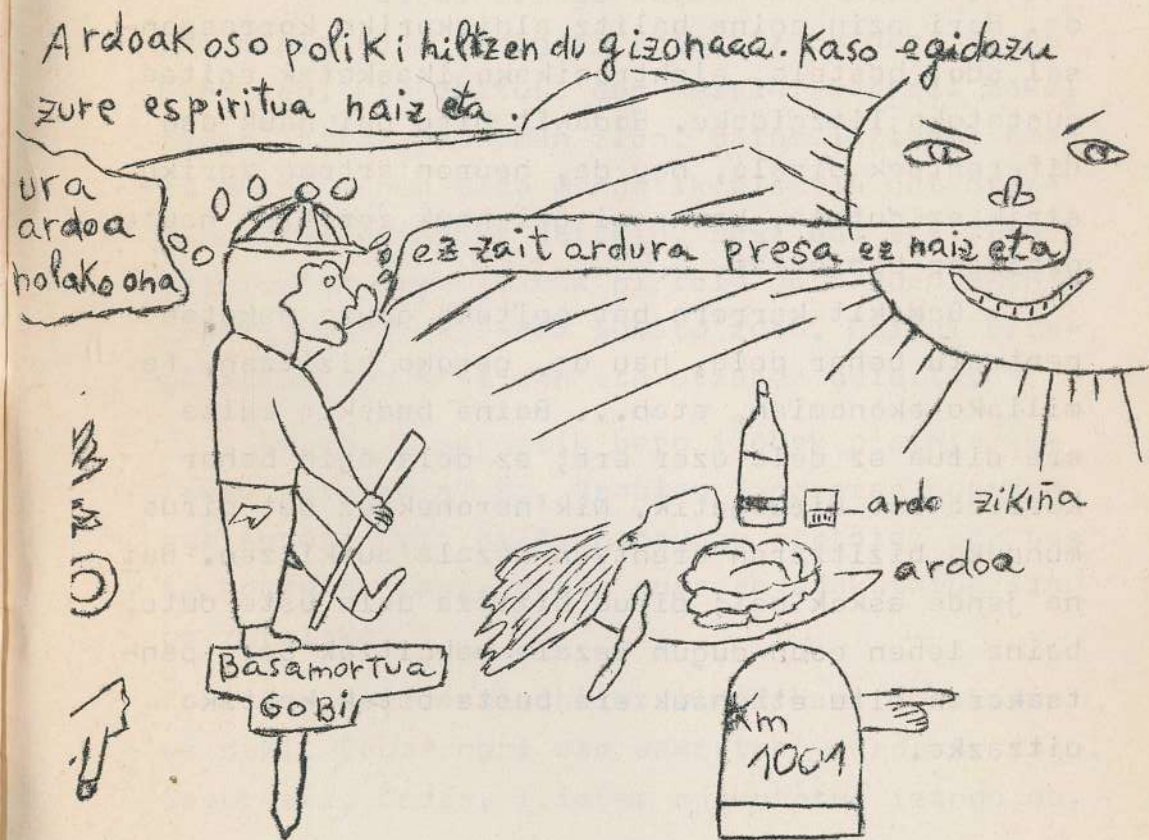 Ardoak oso poliki hiltzen du gizonaaa. Kaso egidazu
zure espiritua naiz eta.
ura
ardoa
nolako ona
ez zait ardura presa ez naiz eta
ardo zikiña
ardoa
Basamortua
GOBi
Km
1001